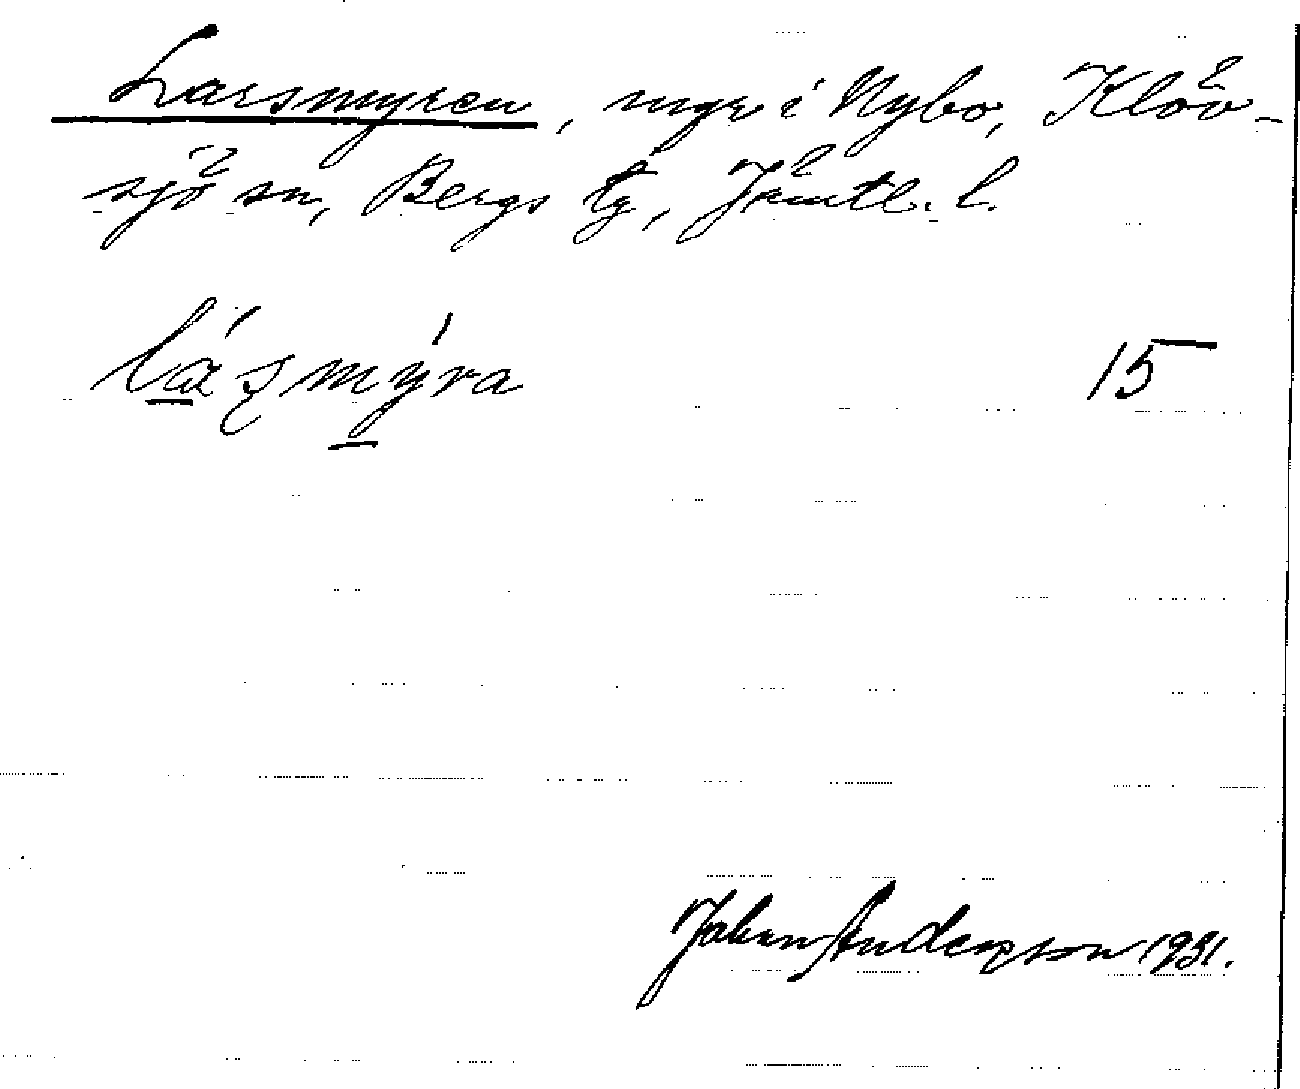 Larsmyren, myr i Nybo, Klöv-
sjö sn, Bergs tg, Jämtl. l.
lá̱ʂmý̱ra 15
Johan Anderson 1931.